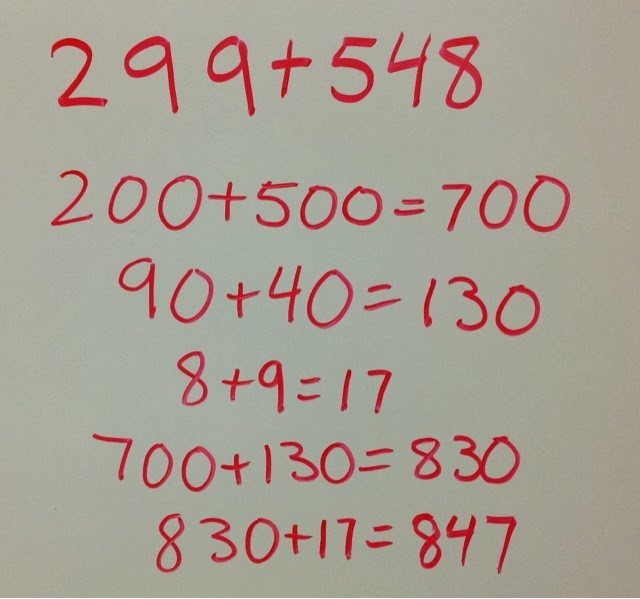 299+548
200+500=700
90+40=130
8+9=17
700+130=830
830+17=847